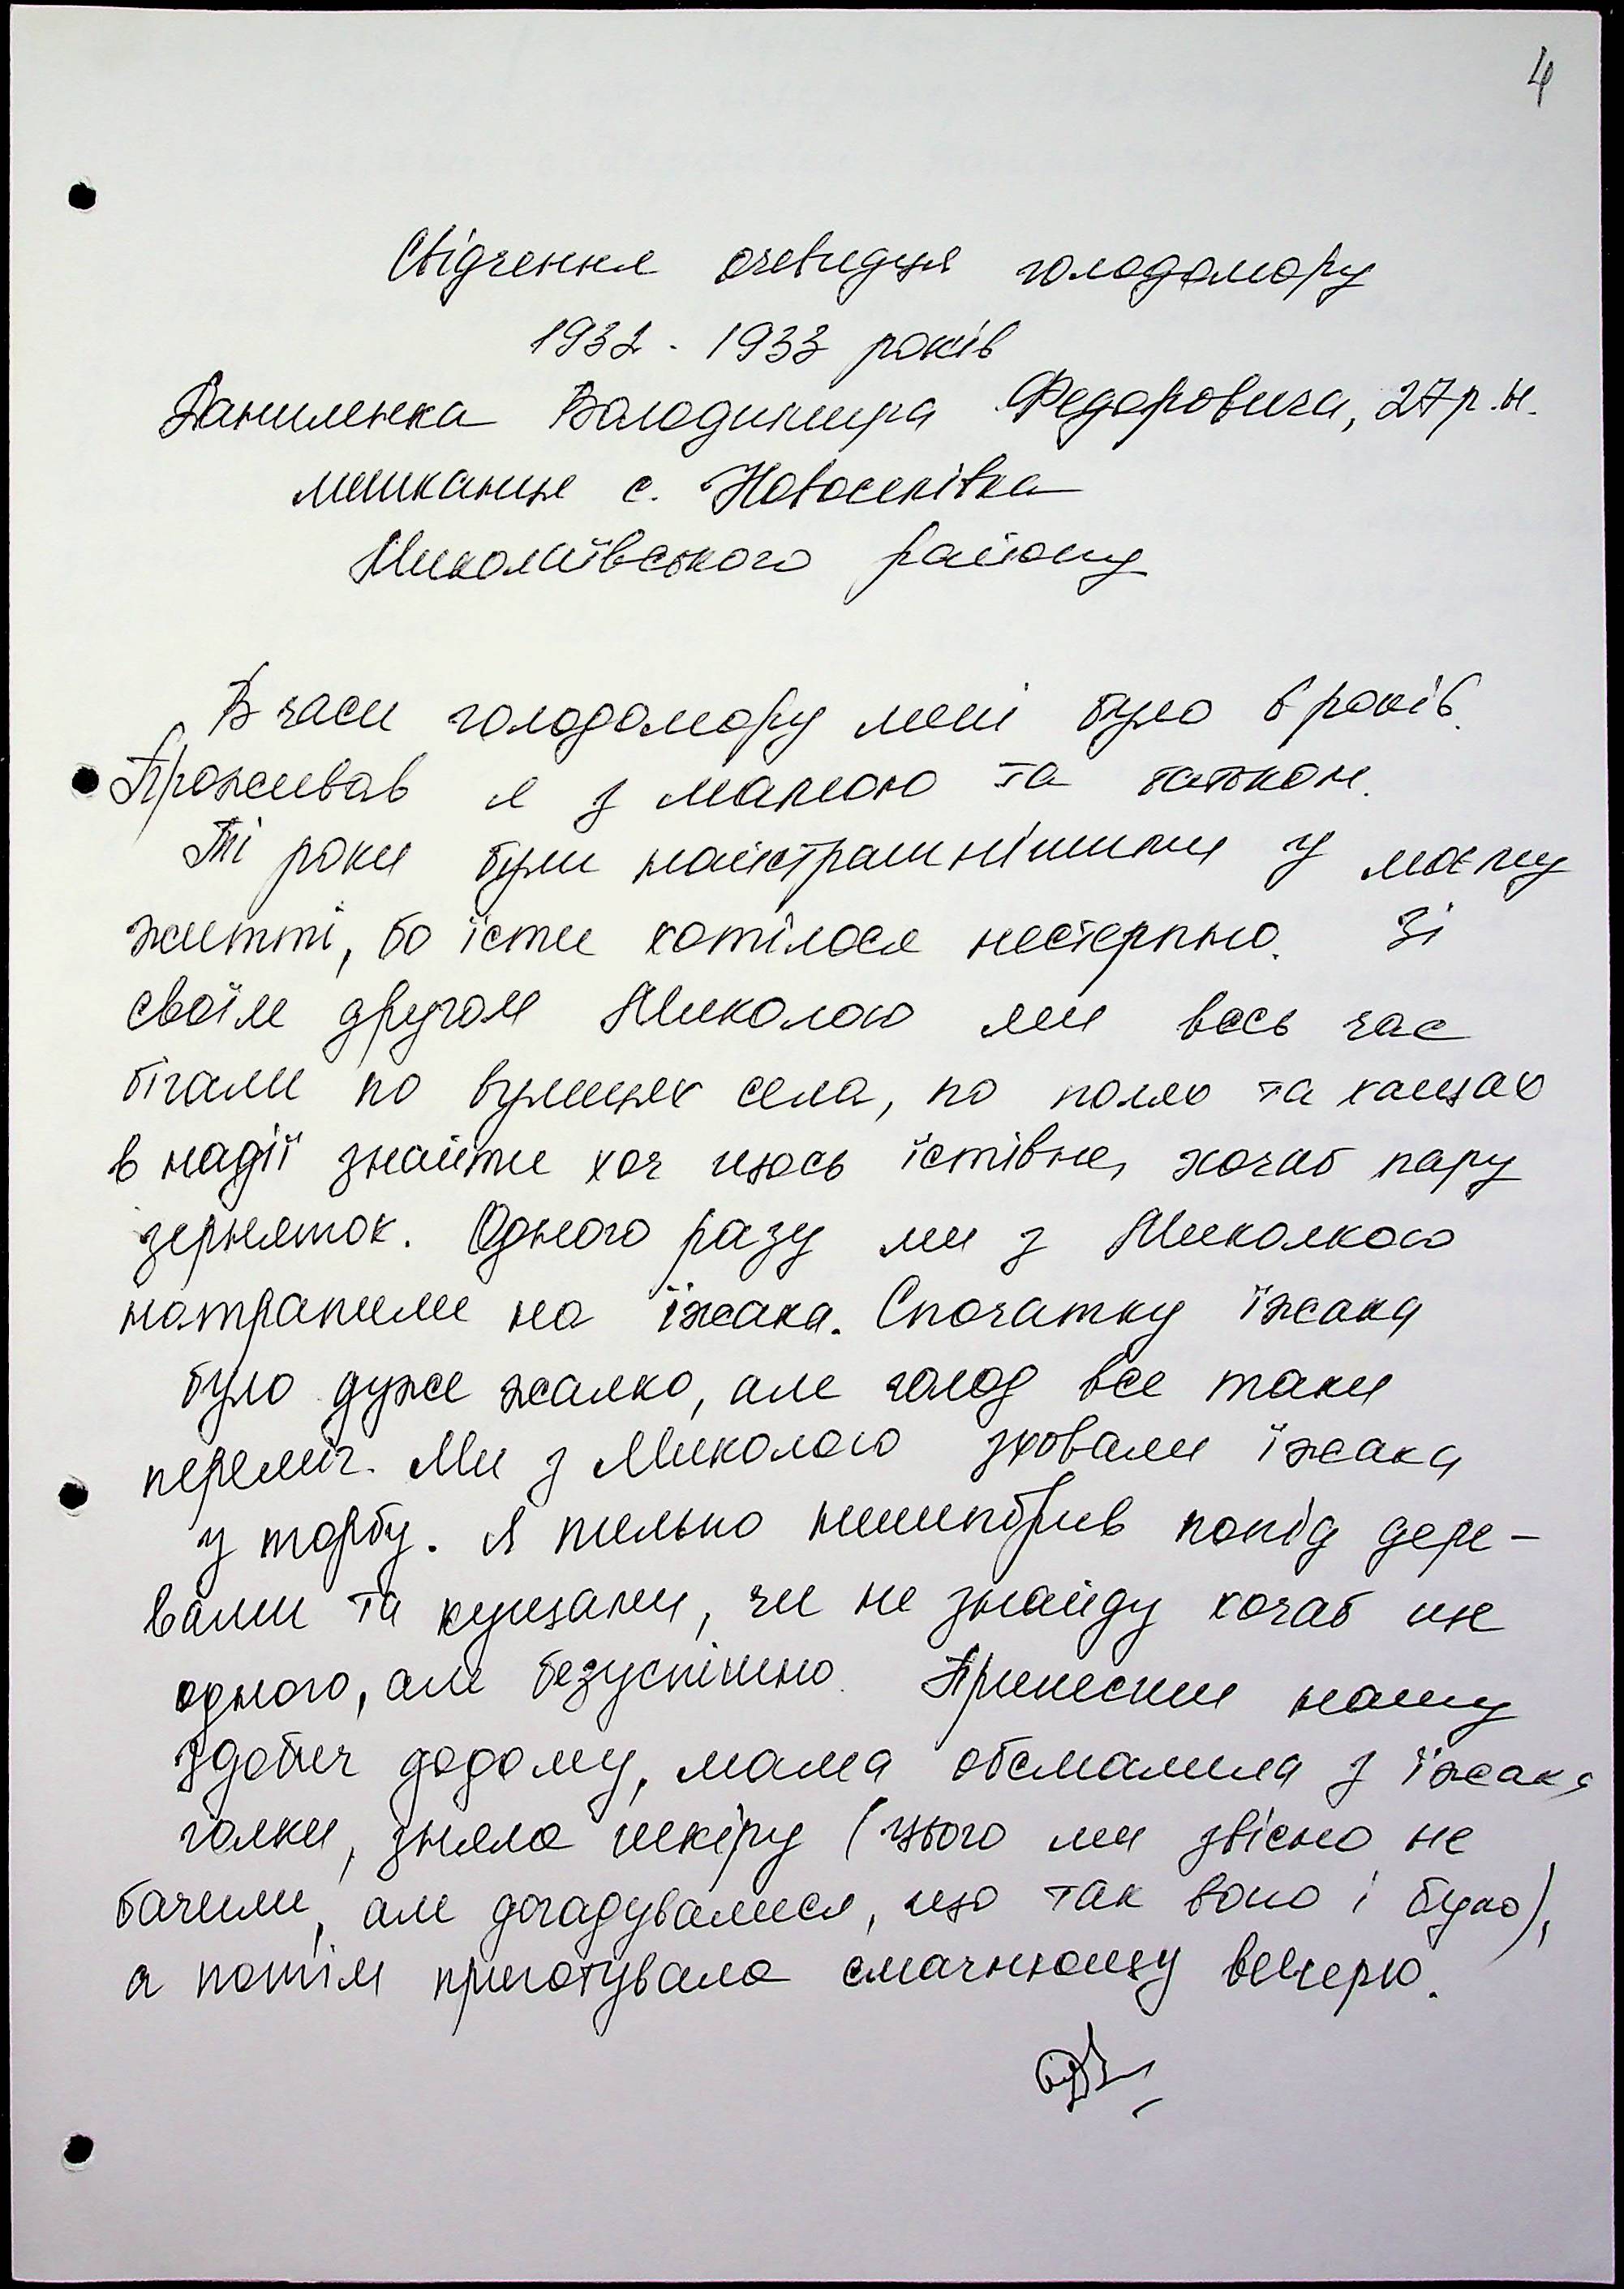 4
Свідчення очевидця голодомору
1932 - 1933 років
Даниленка Володимира Федоровича, 27 р.н.
мешканця с. Новоселівка
Миколаївського району
В часи голодомору мені було 6 років.
Проживав я з мамою та батьком.
Ті роки були найстрашнішими у моєму
житті, бо їсти хотілося нестерпно. Зі
своїм другом Миколою ми весь час
бігали по вулицях села, по полю та хащах
в надії знайти хоч щось їстівне, хочаб пару
зерняток. Одного разу ми з Миколкою
натрапили на їжака. Спочатку їжака
було дуже жалко, але голод все таки
переміг. Ми з Миколою зховали їжака
у торбу. Я пильно нишпорив попід дере-
вами та кущами, чи не знайду хочаб ще
одного, але безуспішно. Принесши нашу
здобич додому, мама обсмалила з їжака
голки, зняла шкіру (цього ми звісно не
бачили, але догадувалися, що так воно і було),
а потім приготувала смачнющу вечерю.